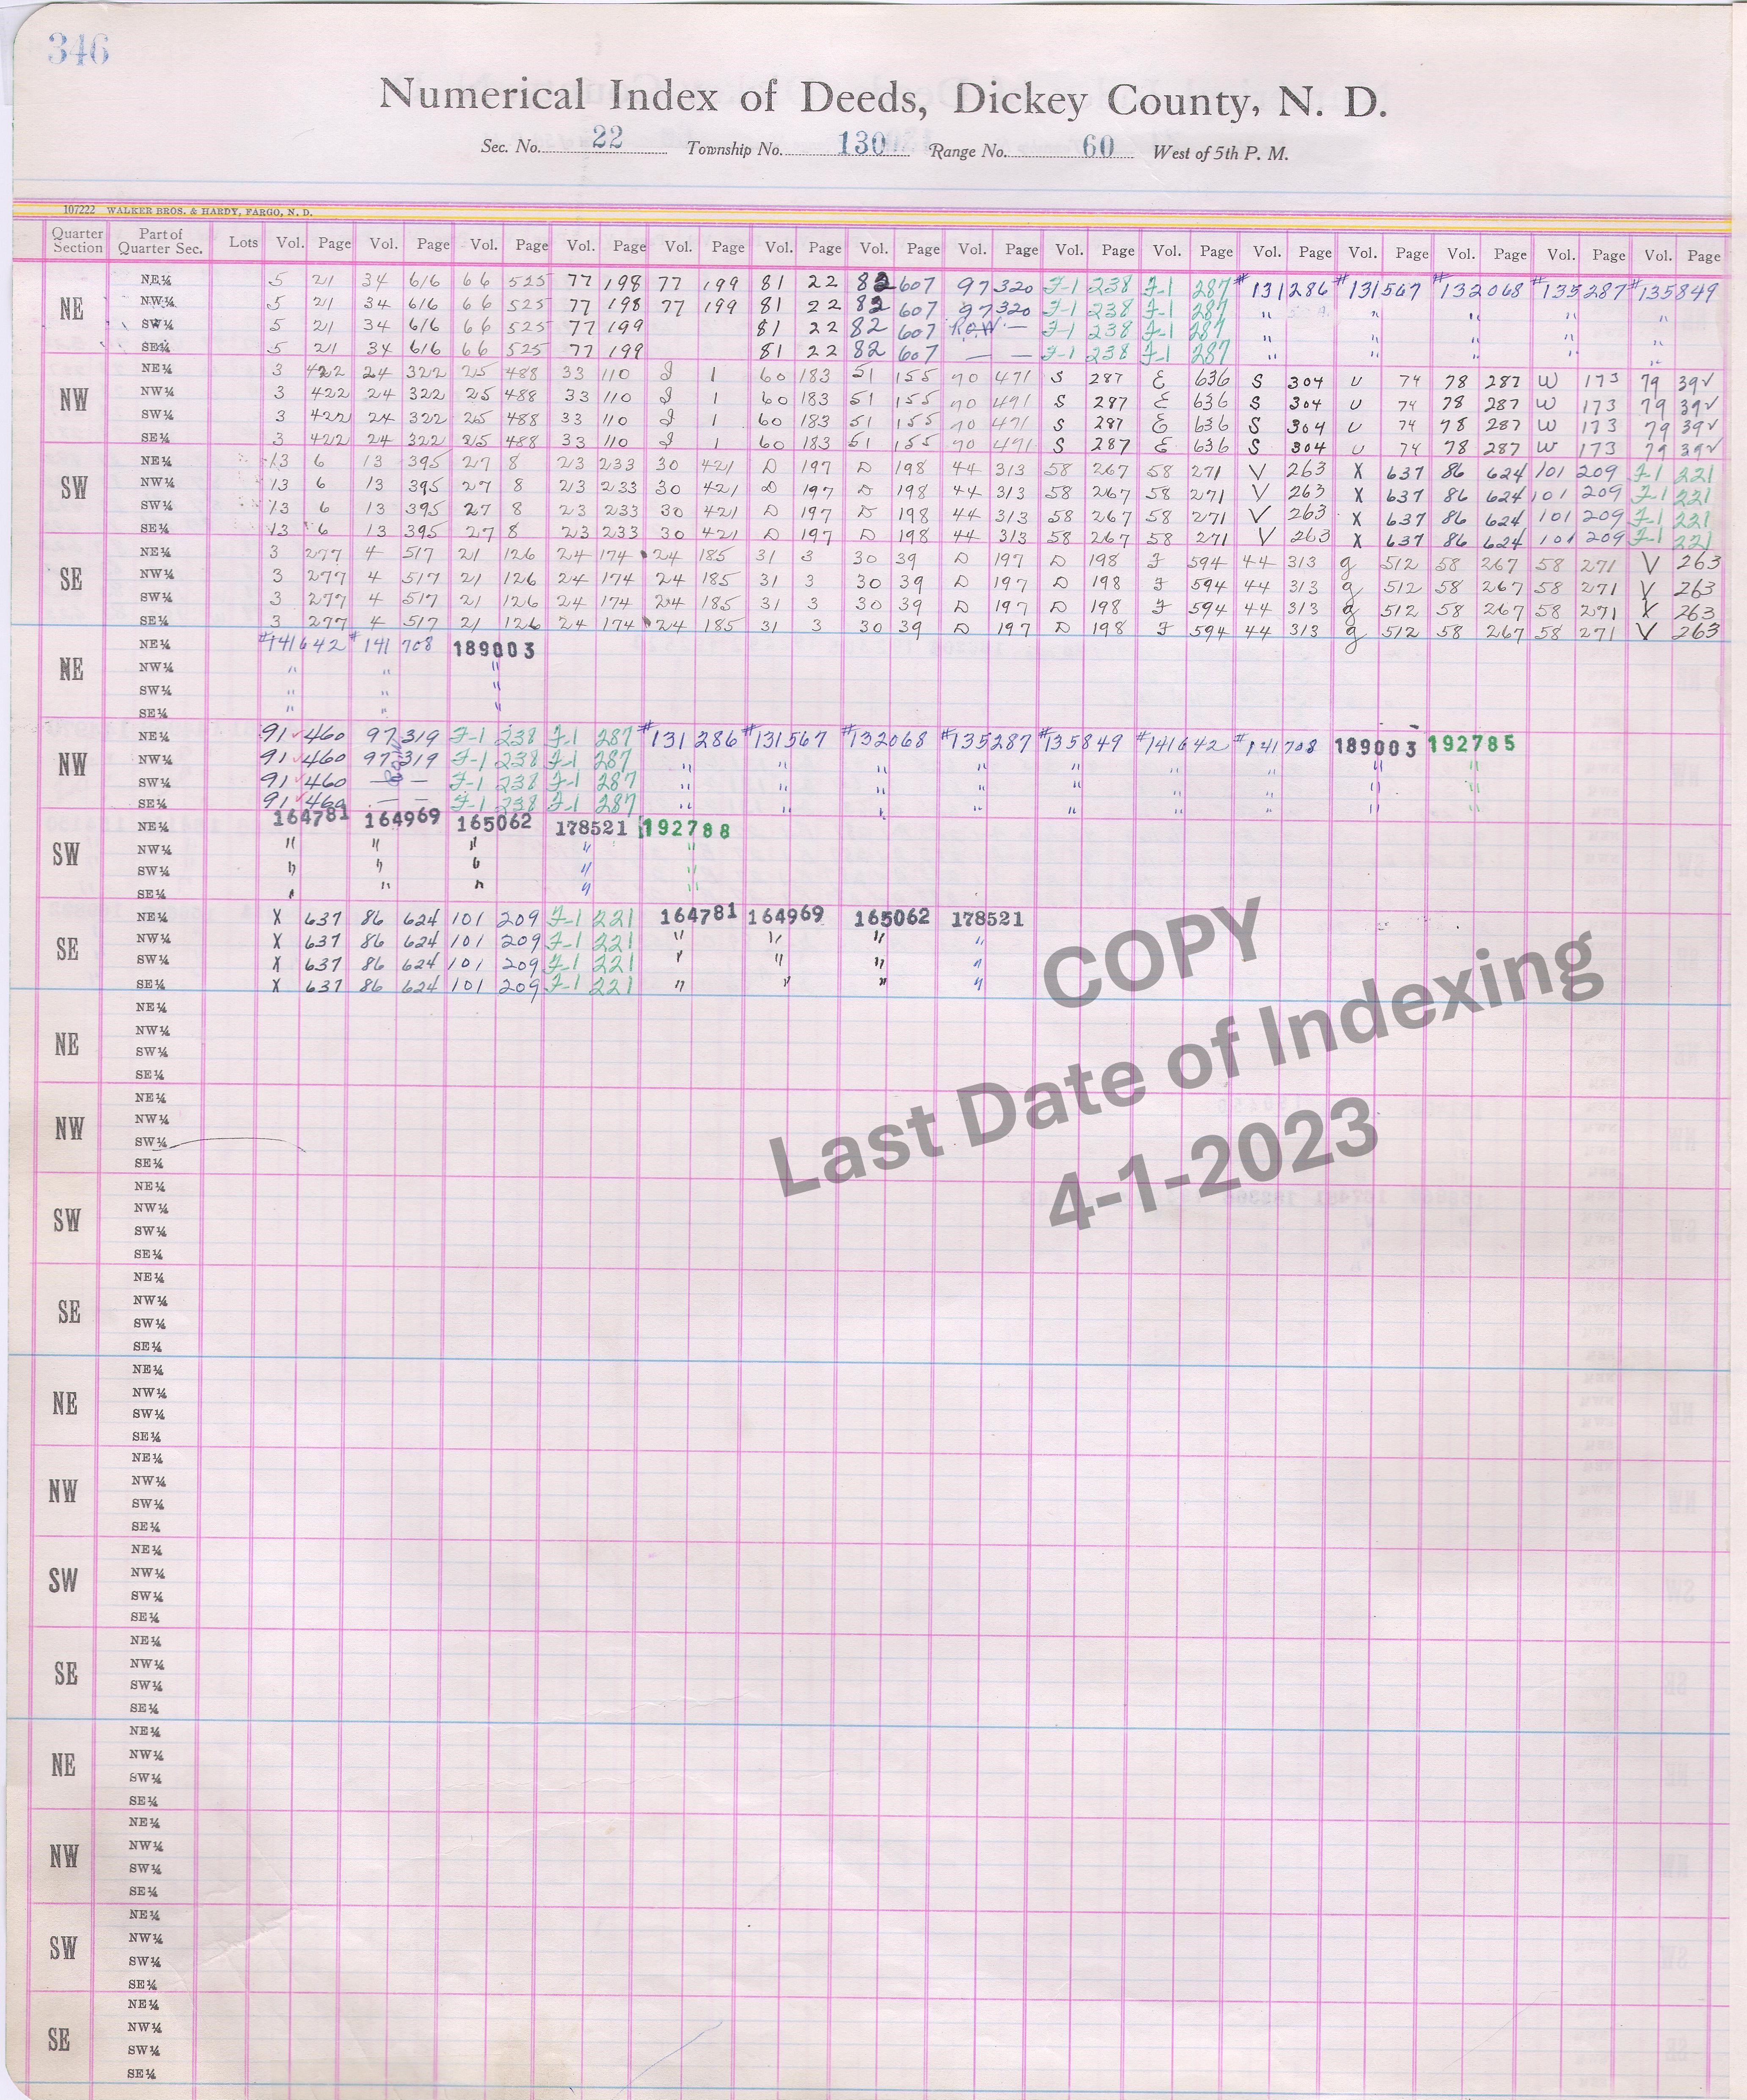 346
Numerical Index of Deeds, Dickey County, N. D.
Sec. No. 22 Township No. 130 Range No. 60 West of 5th P. M.
107222 WALKER BROS. & HARDY, FARGO, N. D.
Quarter Section Part of Quarter Sec. Lots Vol. Page Vol. Page Vol. Page Vol. Page Vol. Page Vol. Page Vol. Page Vol. Page Vol. Page Vol. Page Vol. Page Vol. Page Vol. Page Vol. Page Vol. Page
NE NE¼ 5 21 34 616 66 525 77 198 77 199 81 22 82 607 97 320 F-1 238 F-1 287 #131286 #131567 #132068 #135287 #135849
NW¼ 5 21 34 616 66 525 77 198 77 199 81 22 82 607 97 320 F-1 238 F-1 287 " " " " "
SW¼ 5 21 34 616 66 525 77 199 81 22 82 607 R.O.W. — F-1 238 F-1 287 " " " " "
SE¼ 5 21 34 616 66 525 77 199 81 22 82 607 — — F-1 238 F-1 287 " " " " "
NW NE¼ 3 422 24 322 25 488 33 110 J 1 60 183 51 155 70 471 S 287 E 636 S 304 U 74 78 287 W 173 79 392
NW¼ 3 422 24 322 25 488 33 110 J 1 60 183 51 155 70 491 S 287 E 636 S 304 U 74 78 287 W 173 79 392
SW¼ 3 422 24 322 25 488 33 110 J 1 60 183 51 155 70 471 S 287 E 636 S 304 U 74 78 287 W 173 79 392
SE¼ 3 422 24 322 25 488 33 110 J 1 60 183 51 155 70 491 S 287 E 636 S 304 U 74 78 287 W 173 79 392
SW NE¼ 13 6 13 395 27 8 23 233 30 421 D 197 D 198 44 313 58 267 58 271 V 263 X 637 86 624 101 209 F-1 221
NW¼ 13 6 13 395 27 8 23 233 30 421 D 197 D 198 44 313 58 267 58 271 V 263 X 637 86 624 101 209 F-1 221
SW¼ 13 6 13 395 27 8 23 233 30 421 D 197 D 198 44 313 58 267 58 271 V 263 X 637 86 624 101 209 F-1 221
SE¼ 13 6 13 395 27 8 23 233 30 421 D 197 D 198 44 313 58 267 58 271 V 263 X 637 86 624 101 209 F-1 221
SE NE¼ 3 277 4 517 21 126 24 174 24 185 31 3 30 39 D 197 D 198 F 594 44 313 g 512 58 267 58 271 V 263
NW¼ 3 277 4 517 21 126 24 174 24 185 31 3 30 39 D 197 D 198 F 594 44 313 g 512 58 267 58 271 V 263
SW¼ 3 277 4 517 21 126 24 174 24 185 31 3 30 39 D 197 D 198 F 594 44 313 g 512 58 267 58 271 X 263
SE¼ 3 277 4 517 21 126 24 174 24 185 31 3 30 39 D 197 D 198 F 594 44 313 g 512 58 267 58 271 V 263
NE NE¼ #141642 #141708 189003
NW¼ " " "
SW¼ " " "
SE¼ " " "
NW NE¼ 91 460 97 319 F-1 238 F-1 287 #131286 #131567 #132068 #135287 #135849 #141642 #141708 189003 192785
NW¼ 91 460 97 319 F-1 238 F-1 287 " " " " " " " " "
SW¼ 91 460 — — F-1 238 F-1 287 " " " " " " " " "
SE¼ 91 460 — — F-1 238 F-1 287 " " " " " " " " "
SW NE¼ 164781 164969 165062 178521 192788
NW¼ " " " " "
SW¼ " " " " "
SE¼ " " " " "
SE NE¼ X 637 86 624 101 209 F-1 221 164781 164969 165062 178521
NW¼ X 637 86 624 101 209 F-1 221 " " " "
SW¼ X 637 86 624 101 209 F-1 221 " " " "
SE¼ X 637 86 624 101 209 F-1 221 " " " "
COPY
Last Date of Indexing
4-1-2023
NE NE¼
NW¼
SW¼
SE¼
NW NE¼
NW¼
SW¼
SE¼
SW NE¼
NW¼
SW¼
SE¼
SE NE¼
NW¼
SW¼
SE¼
NE NE¼
NW¼
SW¼
SE¼
NW NE¼
NW¼
SW¼
SE¼
SW NE¼
NW¼
SW¼
SE¼
SE NE¼
NW¼
SW¼
SE¼
NE NE¼
NW¼
SW¼
SE¼
NW NE¼
NW¼
SW¼
SE¼
SW NE¼
NW¼
SW¼
SE¼
SE NE¼
NW¼
SW¼
SE¼